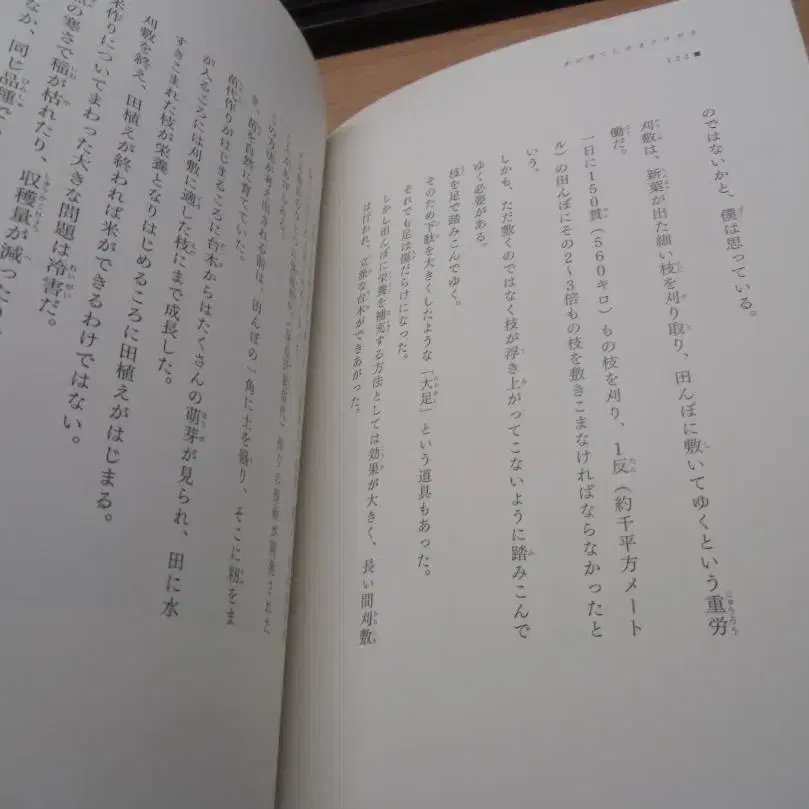 米が育てたオオクワガタ
122■
のではないかと、僕は思っている。
刈敷は、新葉が出た細い枝を刈り取り、田んぼに敷いてゆくという重労
働だ。
一日に150貫（560キロ）もの枝を刈り、1反（約千平方メート
ル）の田んぼにその2〜3倍もの枝を敷きこまなければならなかったと
いう。
しかも、ただ敷くのではなく枝が浮き上がってこないように踏みこんで
ゆく必要がある。
枝を足で踏みこんでゆく。
そのため下駄を大きくしたような「大足」という道具もあった。
それでも足は傷だらけになった。
しかし田んぼに栄養を補充する方法としては効果が大きく、長い間刈敷
は行われ、立派な台木ができあがった。
作りの技術が開発された
この方法が考え出される前は、田んぼの一角に土を盛り、そこに籾をま
き、苗を自然に育てていた。
苗代作りがはじまるころに台木からはたくさんの萌芽が見られ、田に水
が入るころには刈敷に適した枝にまで成長した。
すきこまれた枝が栄養となりはじめるころに田植えがはじまる。
刈敷を終え、田植えが終われば米ができるわけではない。
米作りについてまわった大きな問題は冷害だ。
の寒さで稲が枯れたり、収穫量が減ったり
なか、同じ品種で